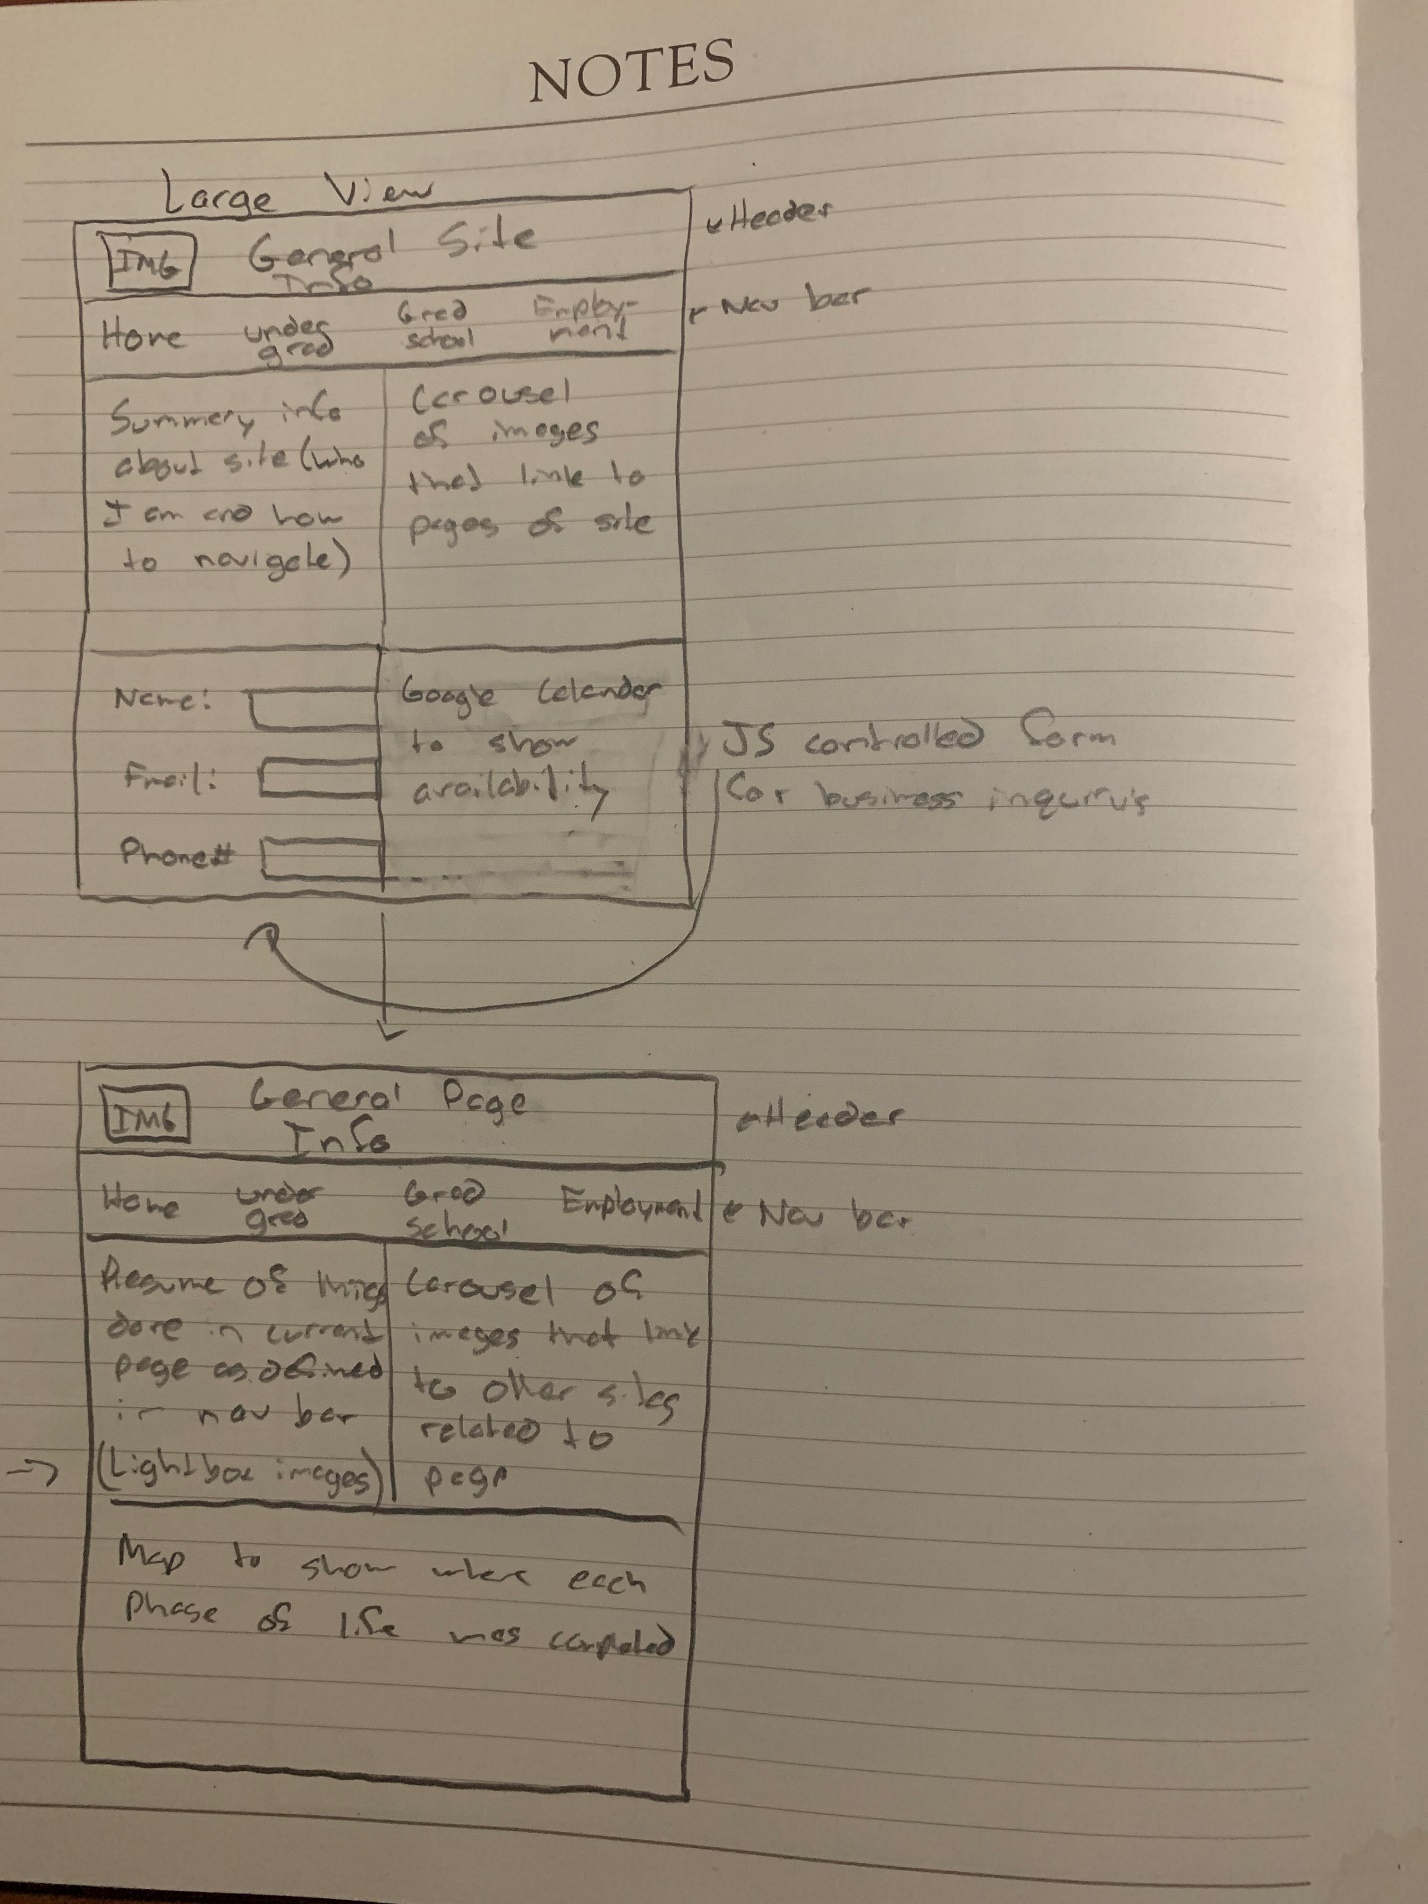 NOTES
Large View
IMG General Site
Info
Header
Home under
grad Grad
school Employ-
ment
Nav bar
Summary info
about site (who
I am and how
to navigate)
Carousel
of images
that link to
pages of site
Name:
Email:
Phone#
Google Calander
to show
availability
JS controlled form
for business
IMG General Page
Info
Header
Home under
grad Grad
school Employment
Nav bar
Resume of things
done in current
page as defined
in nav bar
(Lightbox images)
Carousel of
images that link
to other sites
related to
page
Map to show where each
Phase of life was completed